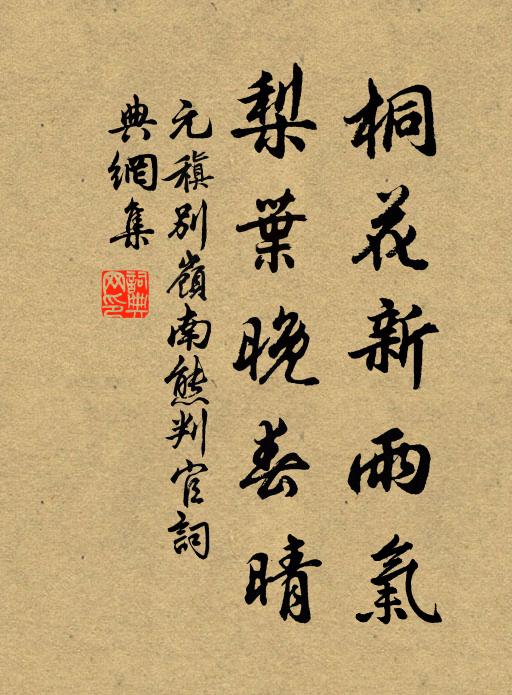 桐花新雨氣
梨葉晚春晴
元稹別嶺南熊判官詞
典網集
詞典
网印